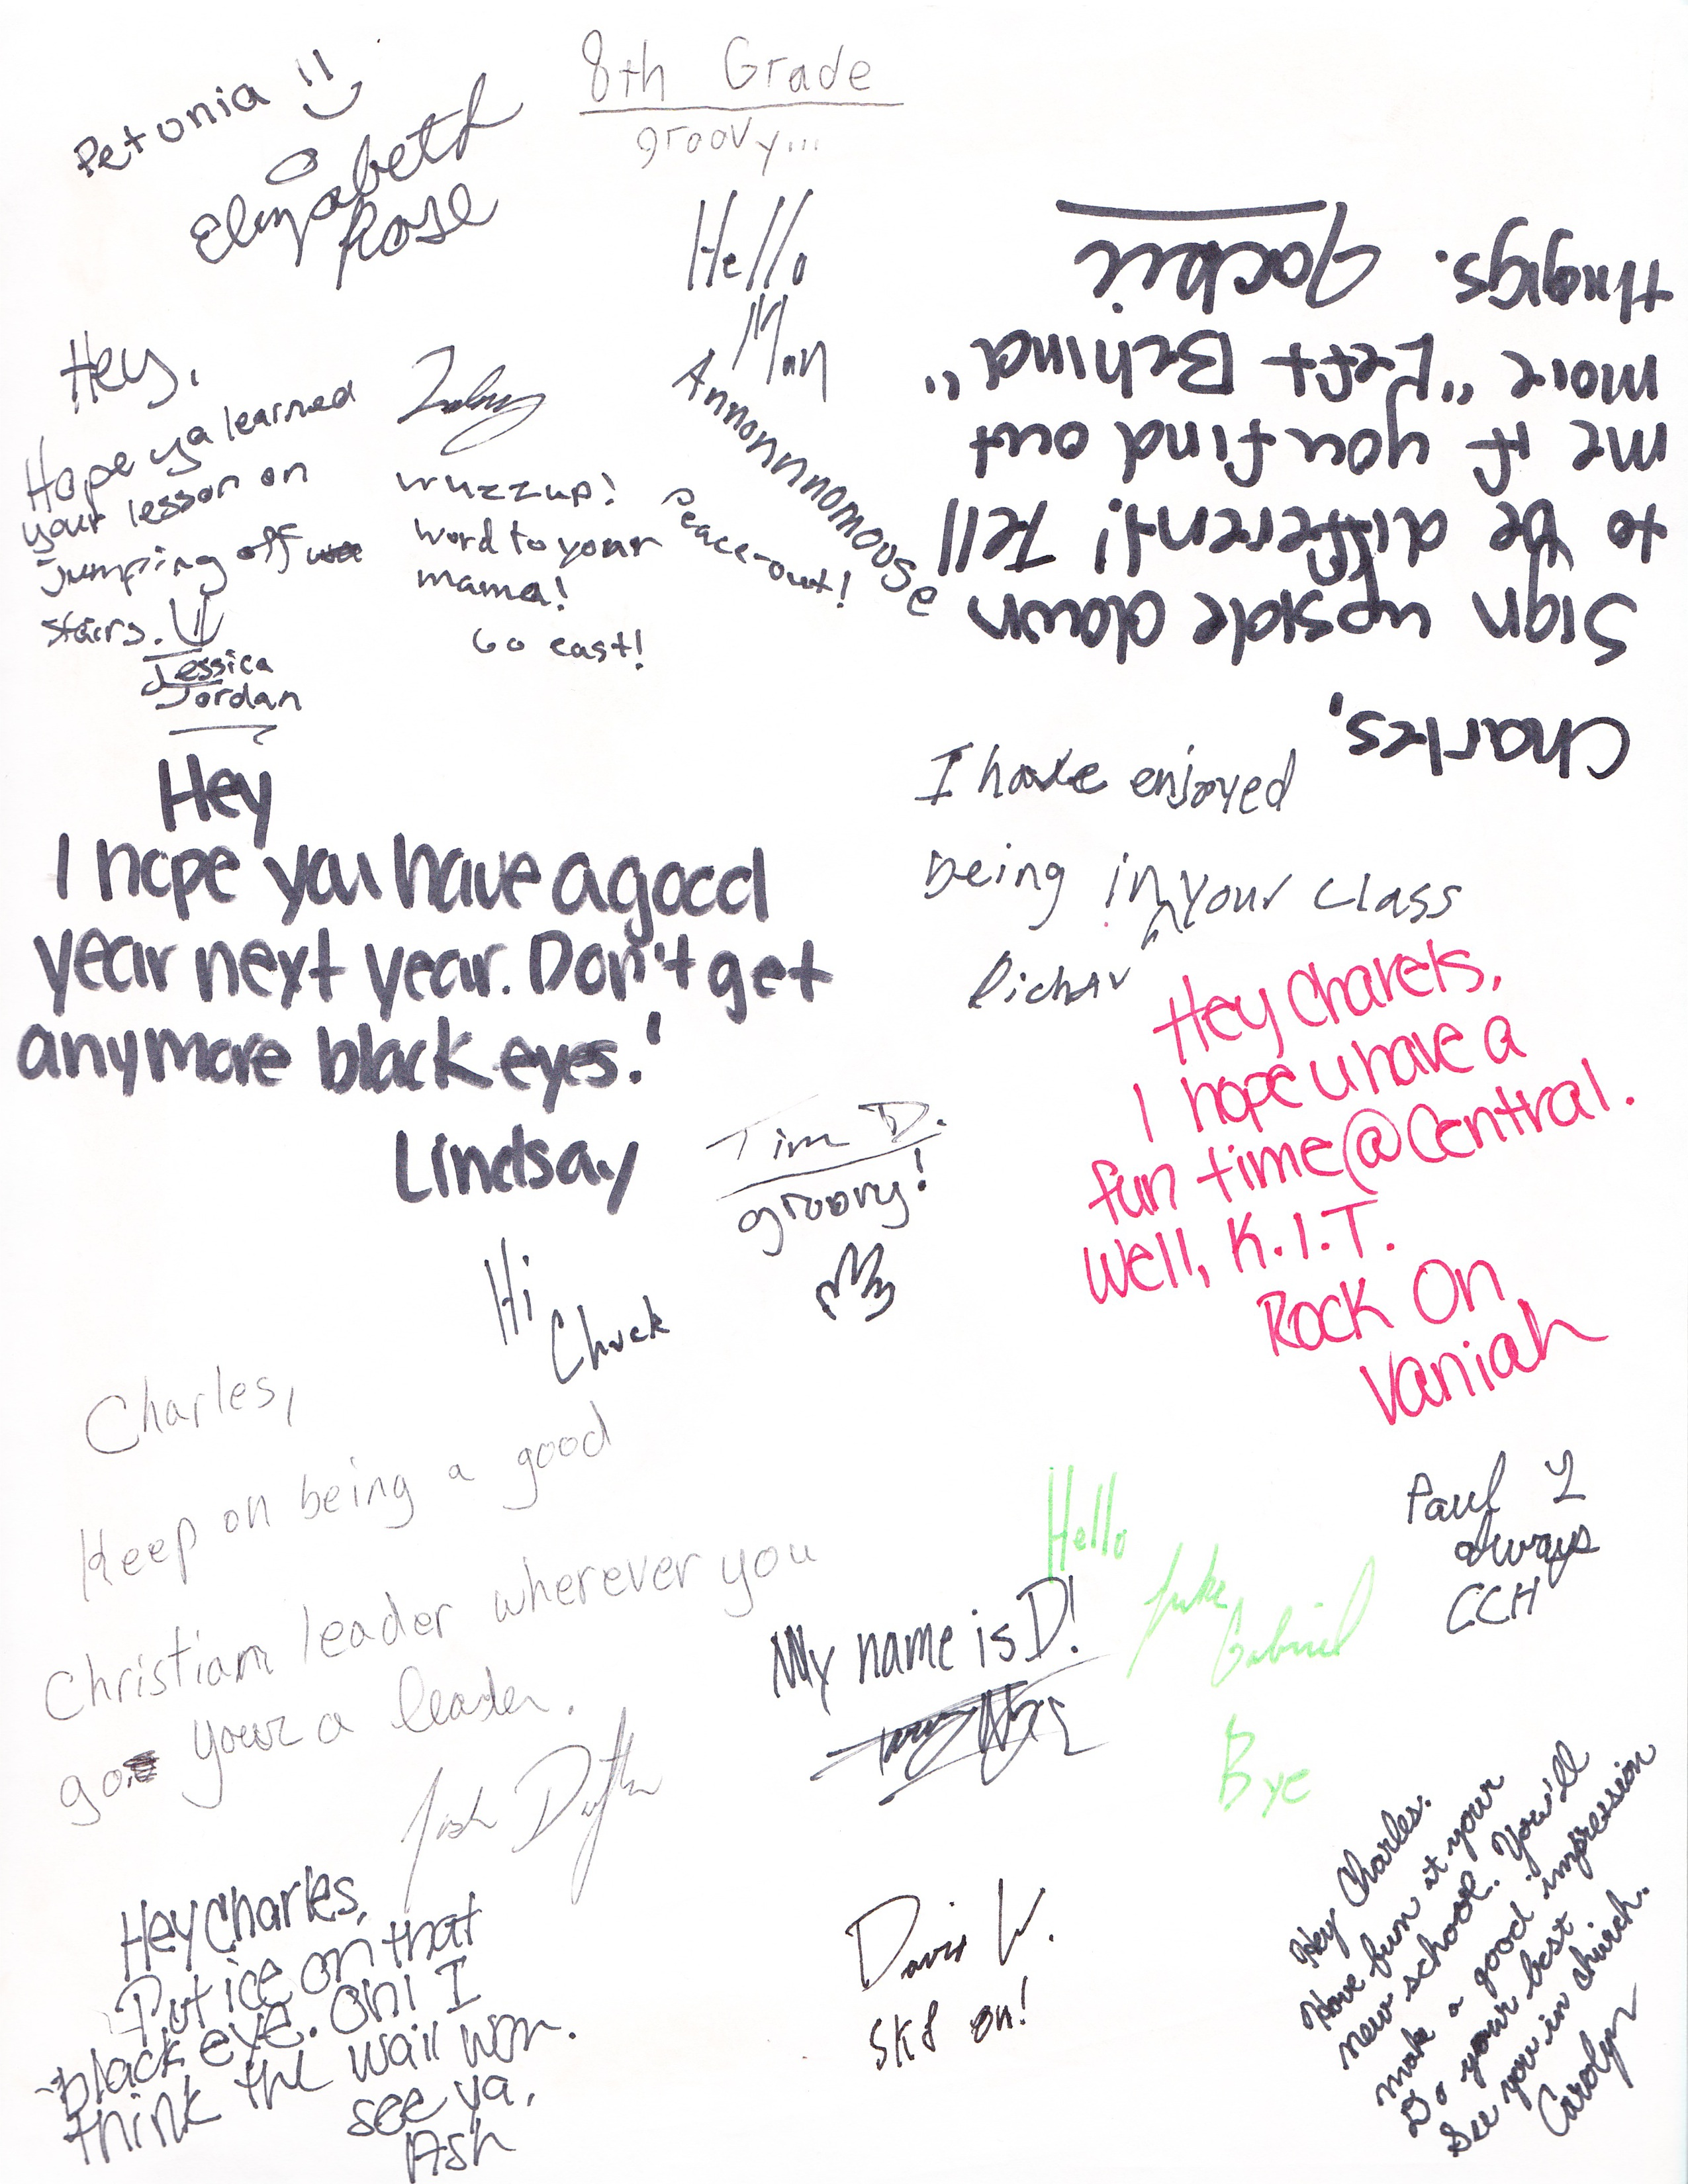 8th Grade
groovy...
Petunia
Elizabeth
Rose
Hello
Man
Annonnnomouse
Peace-out!
Hey,
Hope ya learned
your lesson on
Jumping off
stairs.
Jessica
Jordan
wuzzup!
word to your
mama!
Go east!
Charles,
Sign upside down
to be different! Tell
me if you find out
more "Left Behind"
thingigs.
Jackie
Hey
I hope you have a good
year next year. Don't get
anymore black eyes!
Lindsay
I have enjoyed
being in your class
Richar
Hey Charels,
I hope u have a
fun time @ Central.
Well, K.I.T.
Rock On
Vaniah
Tim D.
groovy!
Hi
Chuck
Charles,
Keep on being a good
Christian leader wherever you
go. your a leader.
Josh
Hello
Luke
Gabriel
Bye
Paul Y
always
CCH
My name is D!
Hey Charles,
Put ice on that
black eye. Oh! I
think the wall won.
see ya,
Ash
Davis W.
SK8 on!
Hey Charles.
Have fun at your
new school. You'll
make a good impression
Do your best
See you in church.
Carolyn